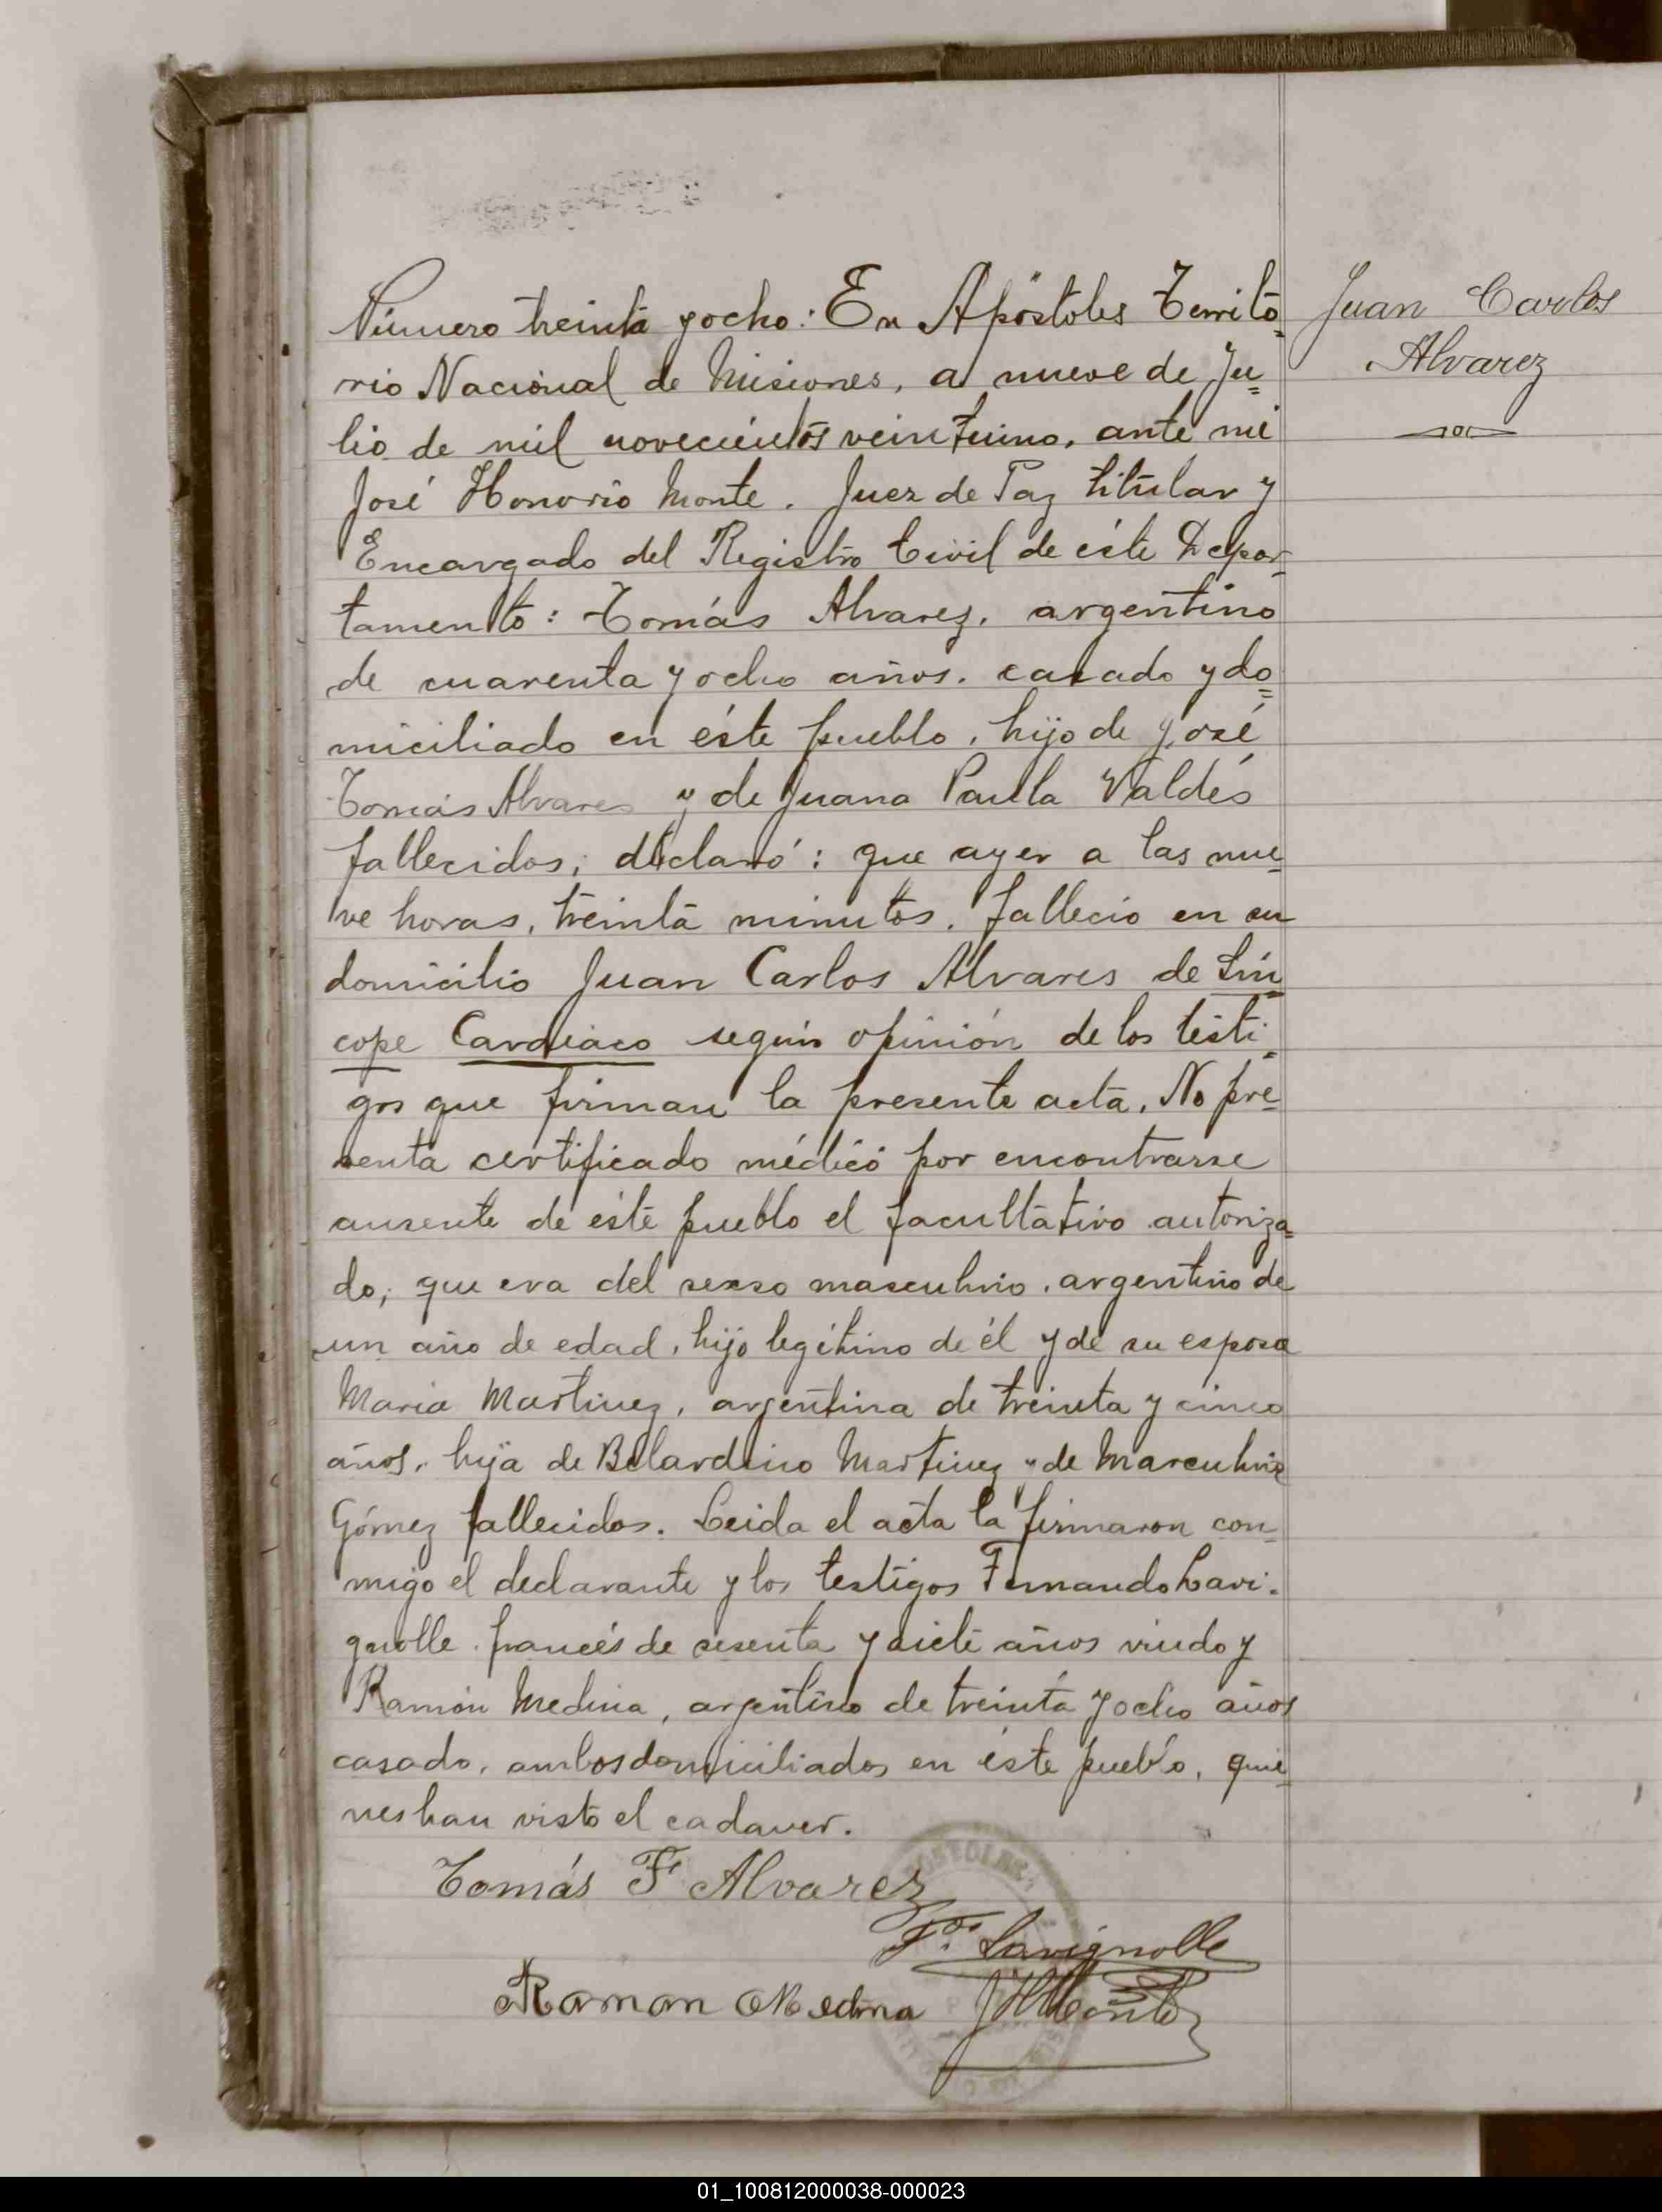 Número treinta y ocho: En Apóstoles Territo=
rio Nacional de Misiones, a nueve de Ju=
lio de mil novecientos veintiuno, ante mi
José Honorio Monte, Juez de Paz titular y
Encargado del Registro Civil de éste Depar-
tamento: Tomás Alvarez, argentino
de cuarenta y ocho años, casado y do=
miciliado en éste pueblo, hijo de José
Tomás Alvares y de Juana Paula Valdés
fallecidos; declaró: que ayer a las nue=
ve horas, treinta minutos, fallecio en su
domicilio Juan Carlos Alvares de Sín=
cope Cardiaco según opinión de los testi=
gos que firman la presente acta, No pre=
senta certificado médico por encontrarse
ausente de éste pueblo el facultativo autoriza=
do; que era del sexso masculino, argentino de
un año de edad, hijo legítimo de él y de su esposa
Maria Martinez, argentina de treinta y cinco
años, hija de Belardino Martinez y de Marculina
Gómez fallecidos. Leida el acta la firmaron con-
migo el declarante y los testigos Fernando Lavi-
gnolle francés de sesenta y siete años viudo y
Ramón Medina, argentino de treinta y ocho años
casado, ambos domiciliados en éste pueblo, quie=
nes han visto el cadaver.
Tomás F Alvarez
F.do Lavignolle
Ramon Medina JHMonte
Juan Carlos
Alvarez
01_100812000038-000023